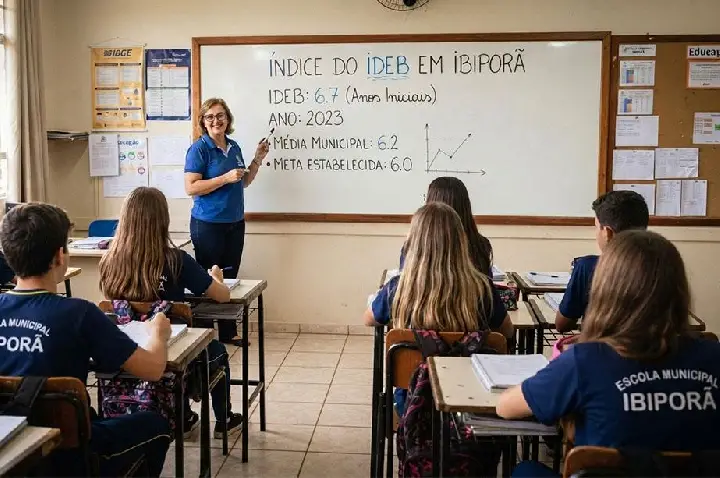 ÍNDICE DO IDEB EM IBIPORÃ
IDEB: 6.7 (Anos Iniciais)
ANO: 2023
• MÉDIA MUNICIPAL: 6.2
• META ESTABELECIDA: 6.0
MUNICIPAL
ESCOLA MUNICIPAL
IBIPORÃ